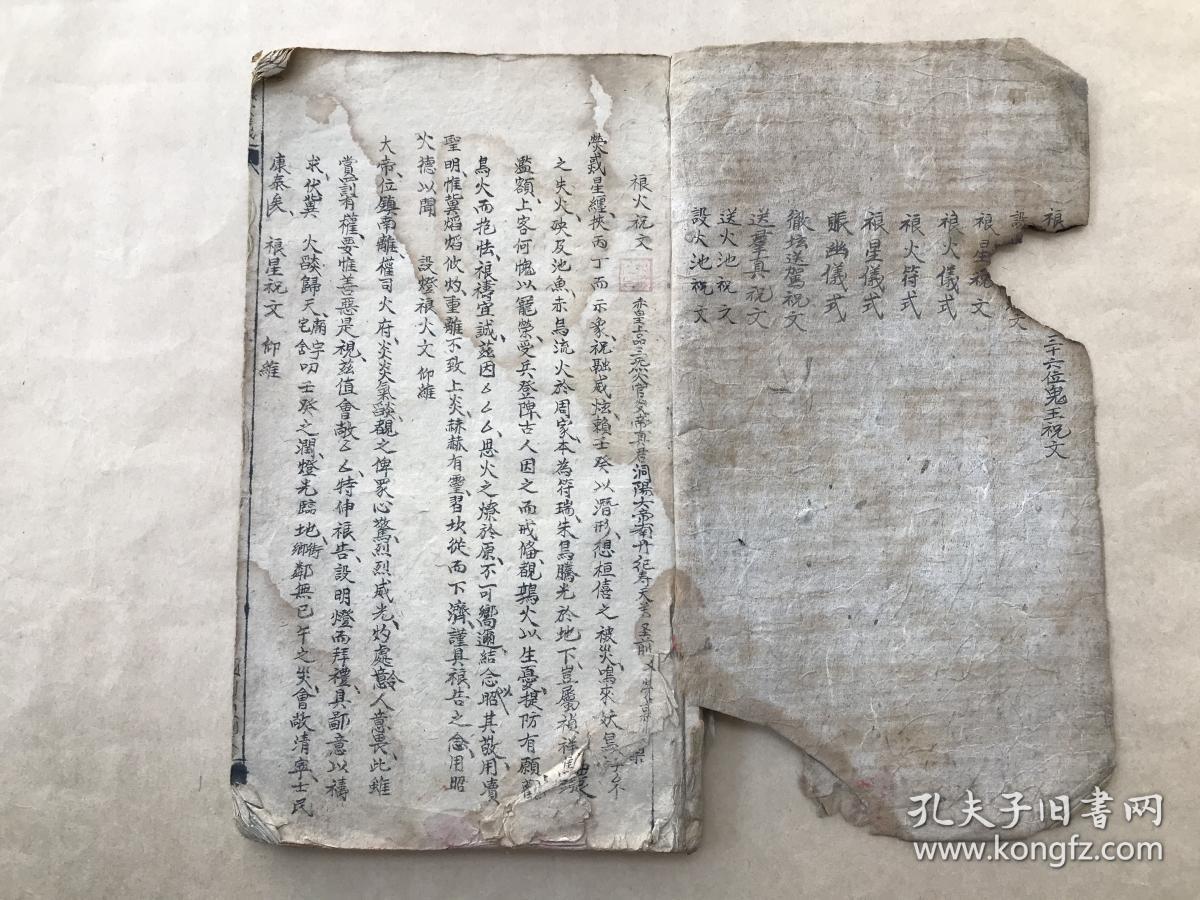 禳
三十六位鬼王祝文
設 文
禳星祝文
禳火儀式
禳火符式
禳星儀式
賑幽儀式
徹壇送駕祝文
送羣真祝文
送火池祝文
設火池祝文
禳火祝文
洞陽大帝南丹紀壽天尊
熒惑星纏挾丙丁而示象祝融威炫賴壬癸以潛形想桓僖之被災鳴來妖鳥
之失火殃及池魚赤烏流火於周家本為符瑞朱鳥騰光於地下豈屬禎祥
濫額上客何愧以寵榮受兵登陴古人因之而戒偹覩鶉火以生憂提防有願
鳥火而抱怯禳禱宜誠茲因厶厶厶思火之燎於原不可嚮邇結念昭其敬用瀆
聖明惟冀焰焰攸灼重離不致上炎赫赫有靈習坎從而下濟謹具禳告之念用昭
火德以聞 設燈禳火文 仰維
大帝位鎮南離權司火府炎炎氣燄覩之俾眾心驚烈烈威光灼處令人意畏此雖
賞罰有權要惟善惡是視茲值會敬厶厶特伸禳告設明燈而拜禮具鄙意以禱
求伏冀 火燄歸天廟宇宅舍叨壬癸之潤燈光臨地街鄉鄰無巳午之災會敬清寧士民
康泰矣 禳星祝文 仰維
孔夫子旧书网
www.kongfz.com